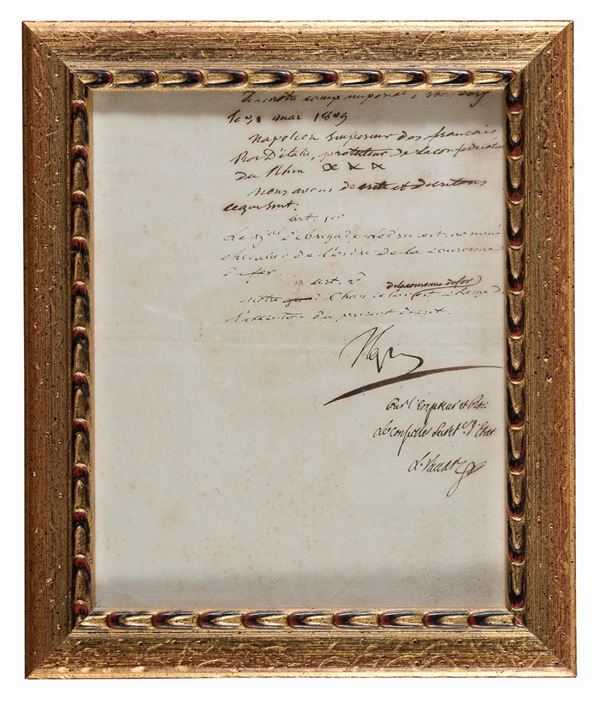 notre camp imperial d'Ebersdorf
le 31 mai 1809
Napoleon Empereur des francais
Roi D'italie, protecteur de la confederation
Du Rhin x x x
nous avons decreté et decretons
ce qui suit:
art. 1er
Le gal de brigade est nommé
chevalier de l'ordre de la couronne
de fer.
art. 2
de la couronne de fer
notre est chargé de
l'execution du present decret.
Np
Par l'Empereur et Roi
Le conseiller Secret re d'Etat